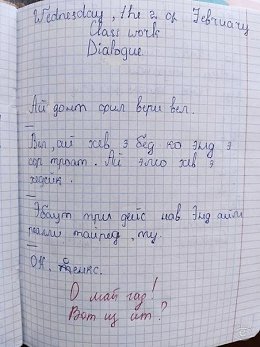 Wednesday, the 2 of February
Class work
Dialogue.
Ай донт фил вери вел.
Вел, ай хев э бед ко энд э
сор троат. Ай элсо хев э
хедейк.
Эбаут три дейс нав энд айм
реали тайред, ту.
ОК, тсенкс.
О май гад!
Вот из ит?